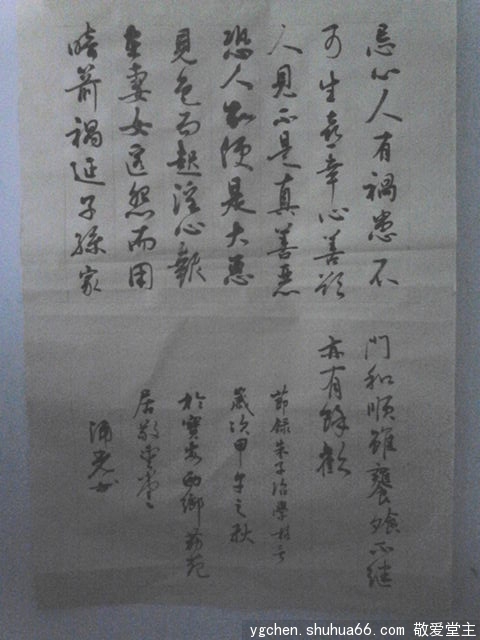 忌心人有禍患不
可生喜幸心善欲
人見不是真善惡
恐人知便是大惡
見色而起淫心報
在妻女匿怨而用
暗箭禍延子孫家
門和順雖饔飧不繼
亦有餘歡
節錄朱子治
歲次甲午之秋
於寶安西鄉
居敬堂
ygchen.shuhua66.com 敬爱堂主